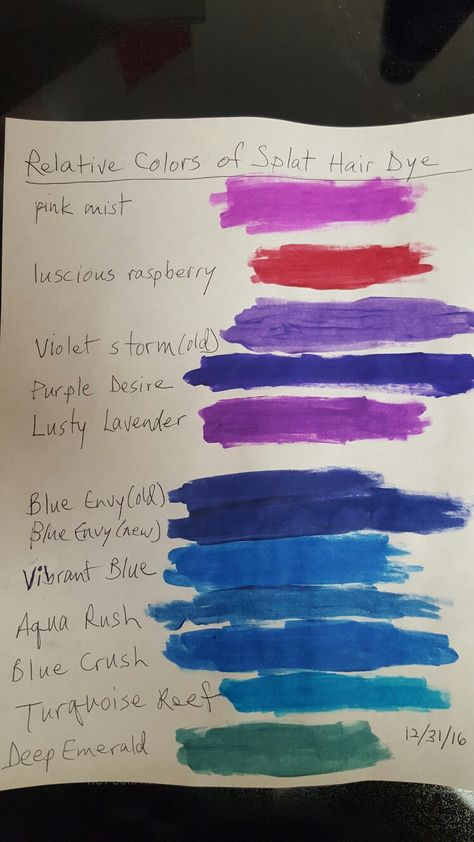 Relative Colors of Splat Hair Dye
pink mist
luscious raspberry
Violet storm(old)
Purple Desire
Lusty Lavender
Blue Envy(old)
Blue Envy(new)
Vibrant Blue
Aqua Rush
Blue Crush
Turquoise Reef
Deep Emerald
12/31/16